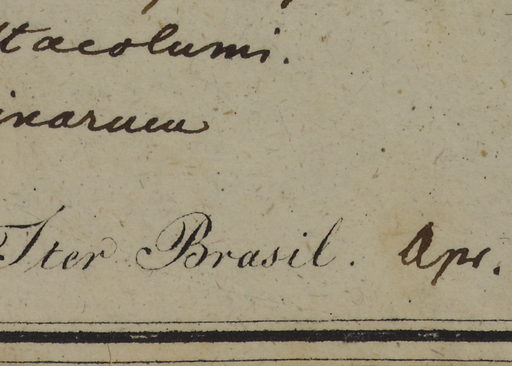 Itacolumi.
inarum
Iter Brasil. Apr.